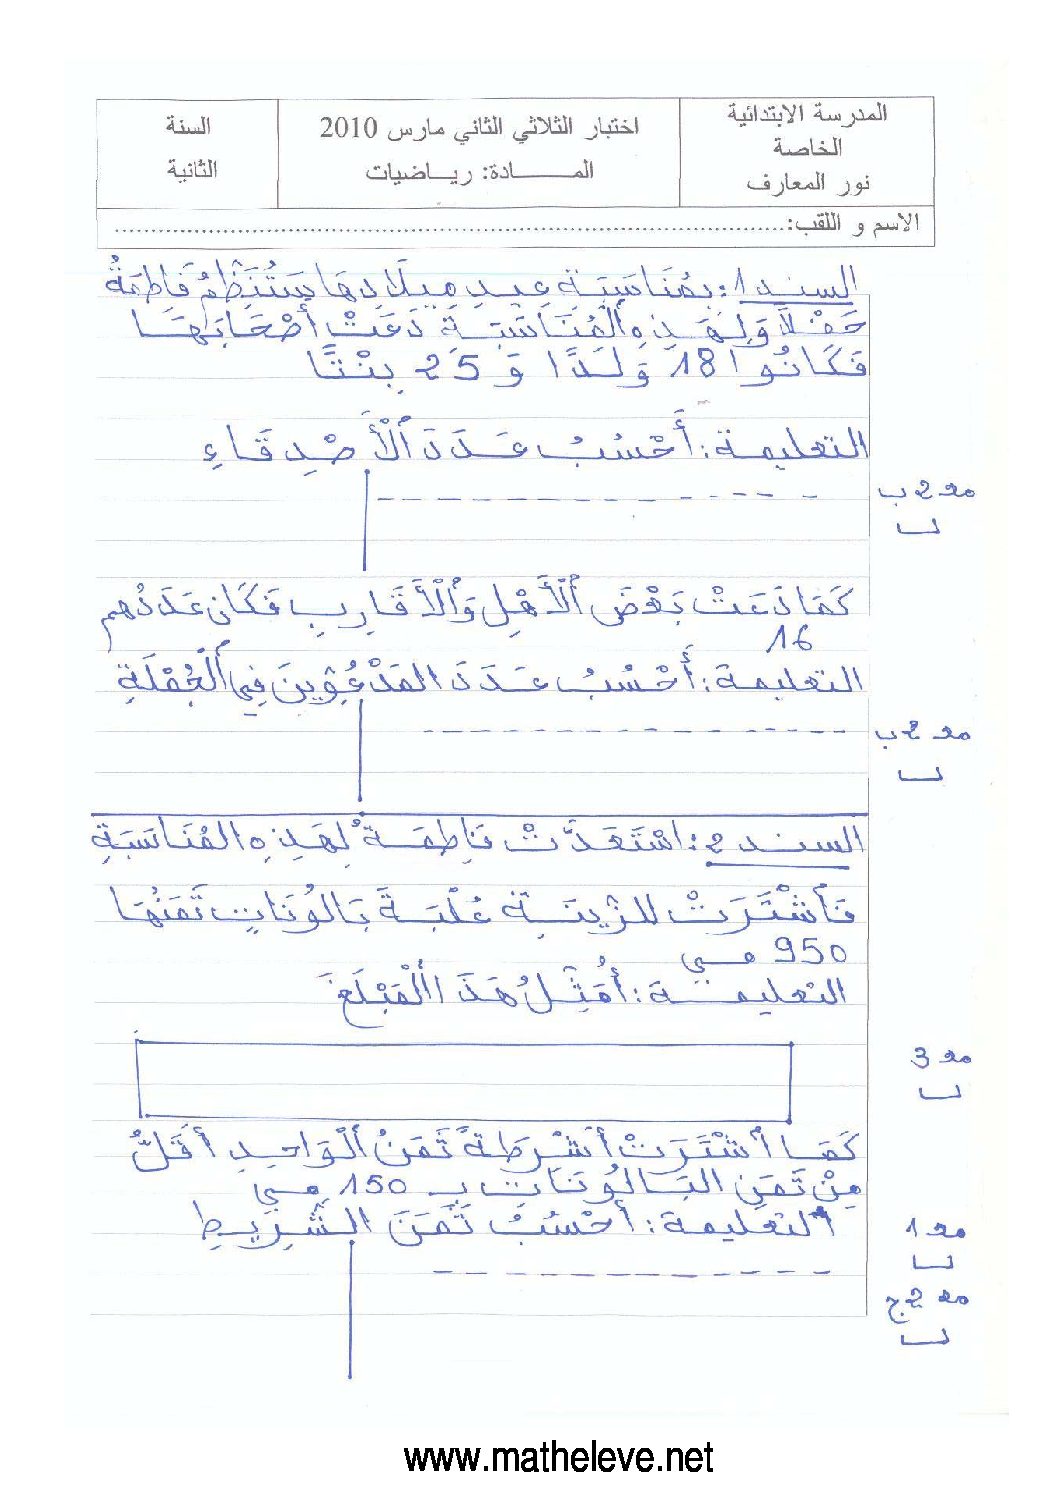 المدرسة الابتدائية
الخاصة
نور المعارف
اختبار الثلاثي الثاني مارس 2010
المــــــادة: ريـــاضيات
السنة
الثانية
الاسم و اللقب:
السند 1: بِمُنَاسَبَةِ عِيدِ مِيلَادِهَا سَتُنَظِّمُ فَاطِمَةُ
حَفْلًا وَلِهَذِهِ الْمُنَاسَبَةِ دَعَتْ أَصْحَابَهَا
فَكَانُوا 18 وَلَدًا وَ 25 بِنْتًا
التعليمة: أَحْسُبُ عَدَدَ ٱلْأَصْدِقَاءِ
مع 2 ب
كَمَا دَعَتْ بَعْضَ ٱلْأَهْلِ وَٱلْأَقَارِبِ فَكَانَ عَدَدُهُم
16
التعليمة: أَحْسُبُ عَدَدَ المَدْعُوِّينَ فِي ٱلْجُمْلَةِ
مع 2 ب
السند 2: اسْتَعَدَّتْ فَاطِمَةُ لِهَذِهِ المُنَاسَبَةِ
فَٱشْتَرَتْ للزِّينَةِ عُلْبَةَ بَالُونَاتٍ ثَمَنُهَا
950 مي
التعليمة: أُمَثِّلُ هَذَا الْمَبْلَغَ
مع 3
كَمَا ٱشْتَرَتْ أَشْرِطَةً ثَمَنُ ٱلْوَاحِدِ أَقَلُّ
مِنْ ثَمَنِ البَالُونَاتِ بِـ 150 مي
التعليمة: أَحْسُبُ ثَمَنَ الشَّرِيطِ
مع 1
مع 2 ج
www.matheleve.net